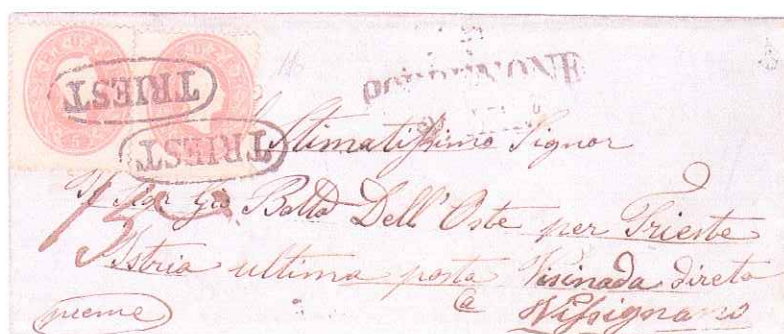 TRIEST
TRIEST
PORDENONE
Stimatissimo Signor
Il Sigr Gio Batta Dell'Oste per Trieste
Istria ultima posta Visinada direta
a Vissignano
preme
15
5